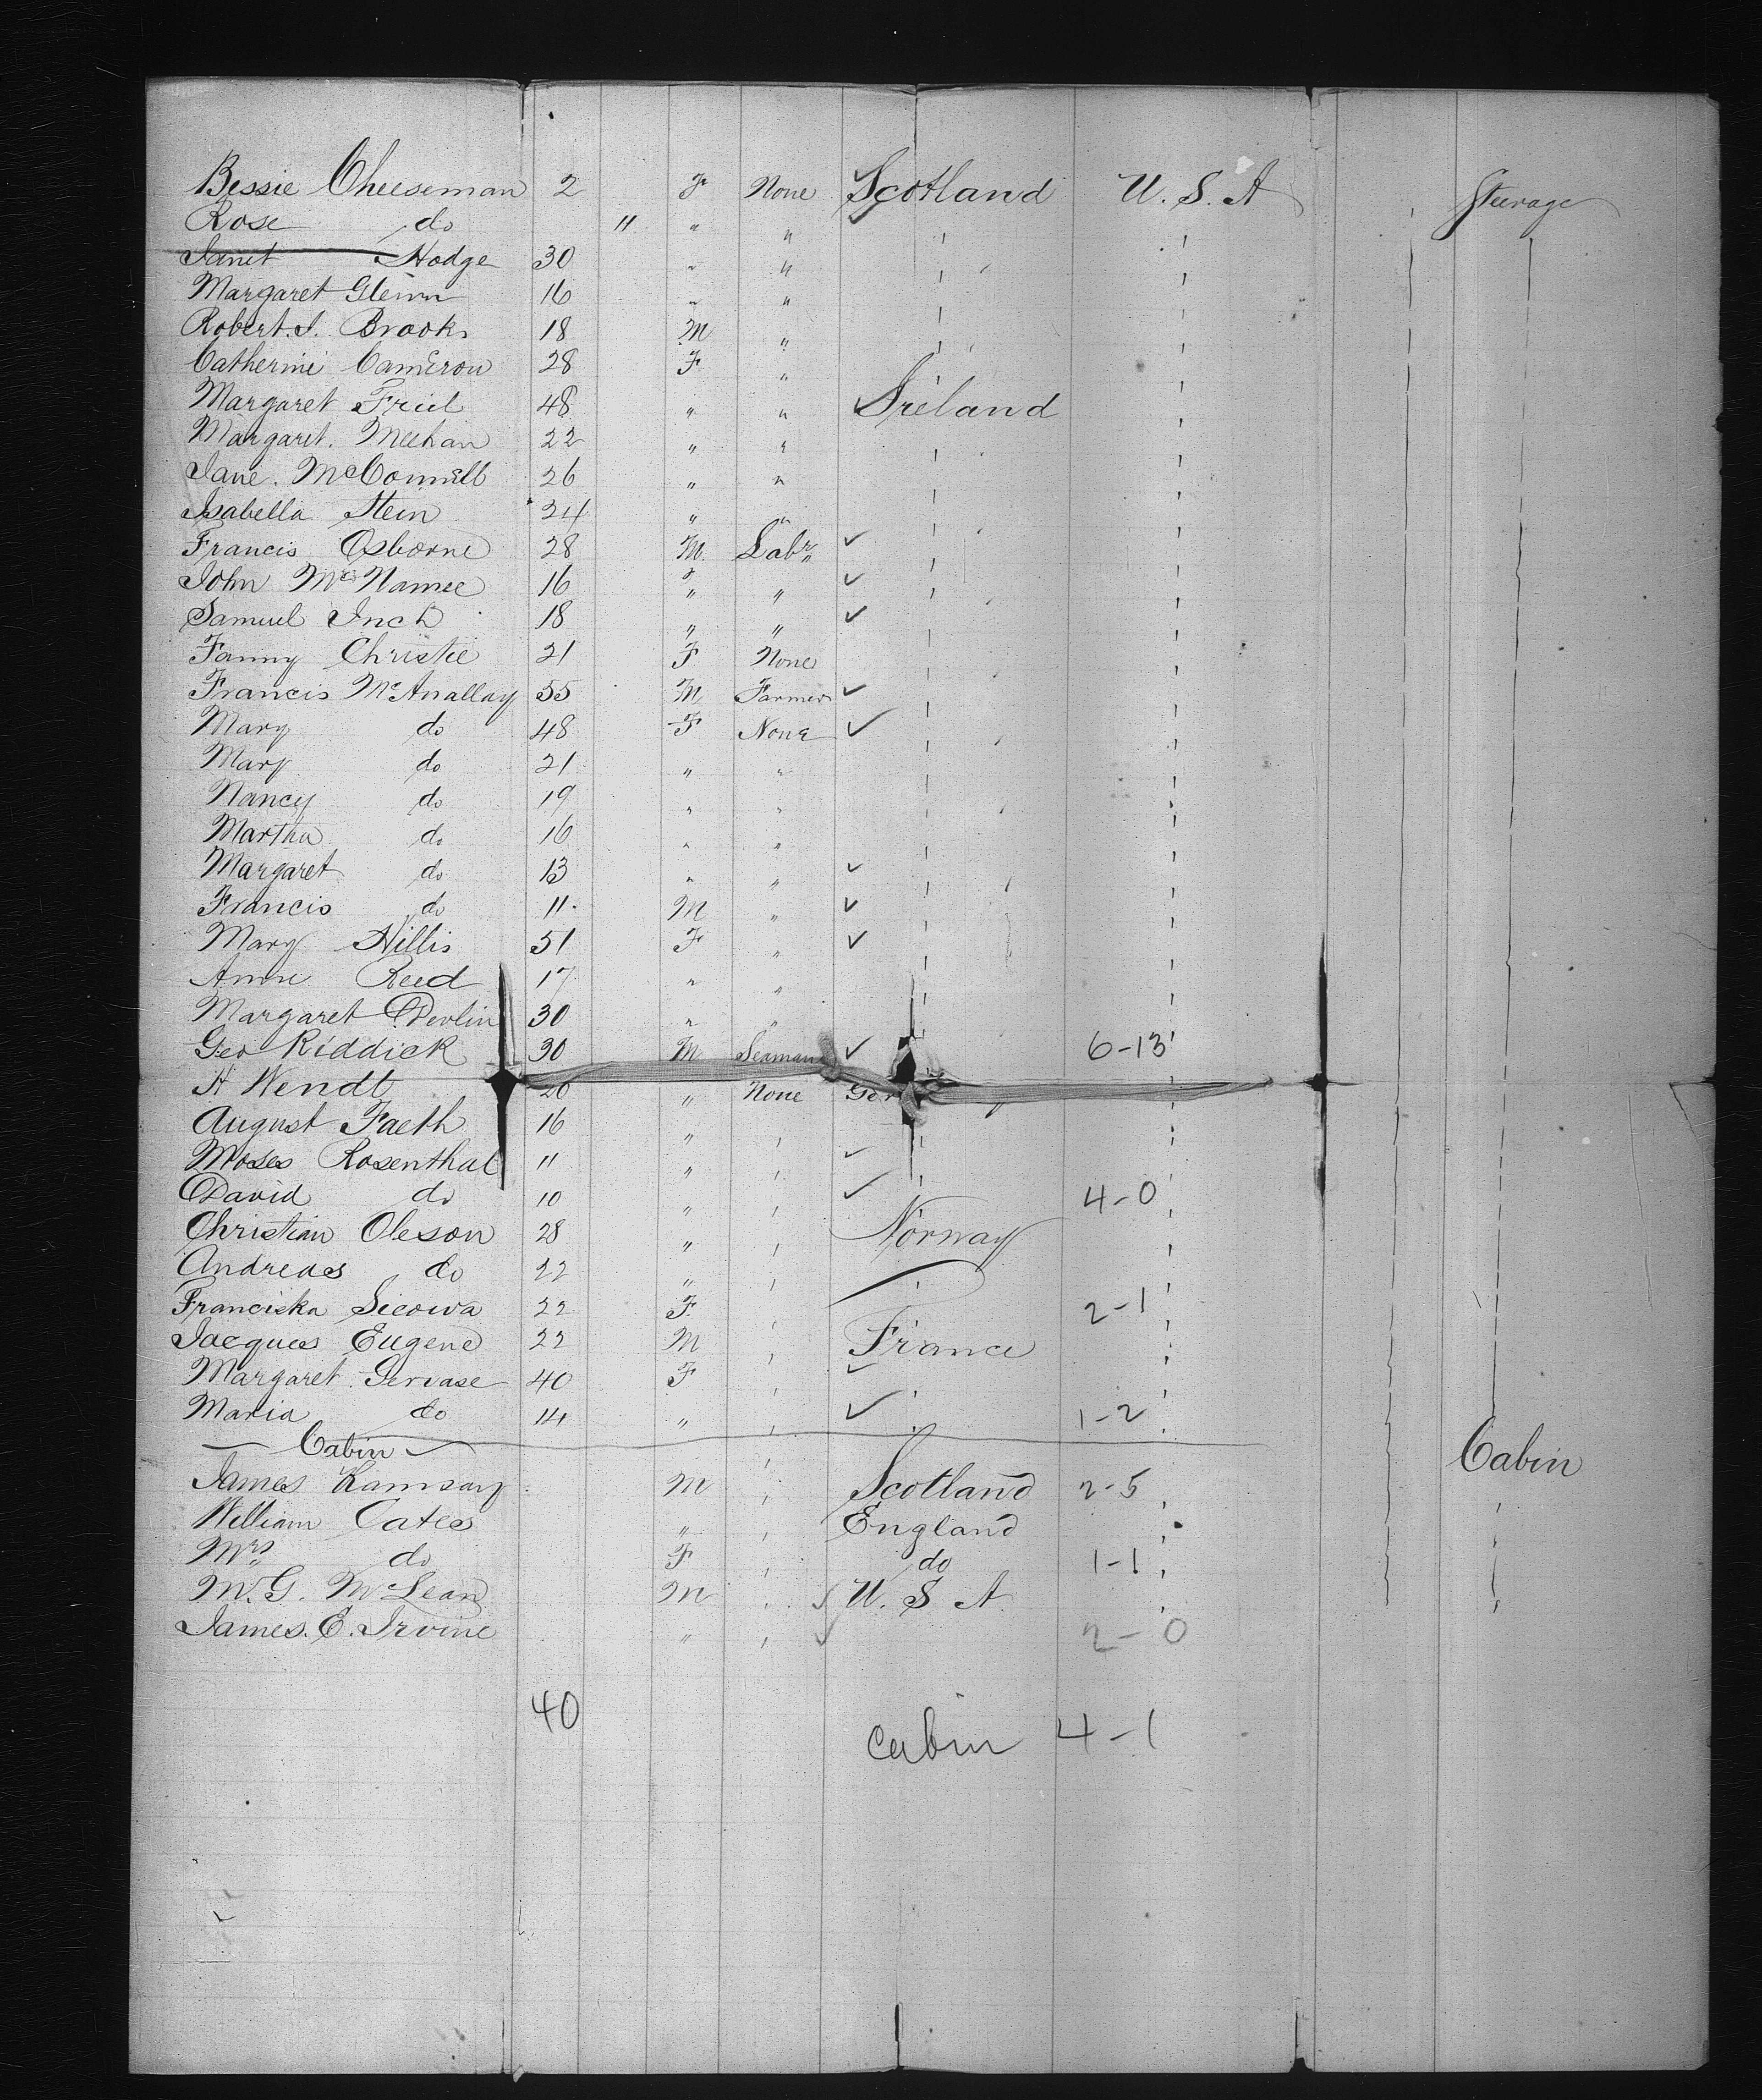 Bessie Cheeseman 2 F None Scotland U.S.A Steerage
Rose do 11 " "
Janet Hodge 30 " "
Margaret Glenn 16 " "
Robert. S. Brooks 18 M "
Catherine Cameron 28 F "
Margaret Friel 48 " " Ireland
Margaret. Meehan 22 " "
Jane. McConnell 26 " "
Isabella Stein 24 " "
Francis Osborne 28 M Labr ✓
John McNamee 16 " " ✓
Samuel Inch 18 " " ✓
Fanny Christie 21 F None
Francis McAnallay 55 M Farmer ✓
Mary do 48 F None ✓
Mary do 21 " "
Nancy do 19 " "
Martha do 16 " "
Margaret do 13 " " ✓
Francis do 11 M " ✓
Mary Hillis 51 F " ✓
Anne Reed 17 " "
Margaret Devlin 30 " "
Geo Riddick 30 M Seaman ✓ 6-13
H Wendt 20 " None Ger
August Faeth 16 " "
Moses Rosenthal 11 " " ✓
David do 10 " " ✓ 4-0
Christian Oleson 28 " " Norway
Andreas do 22 " "
Franciska Sicowa 22 F " 2-1
Jacques Eugene 22 M " France
Margaret Gervase 40 F " ✓
Maria do 14 " " ✓ 1-2
Cabin Cabin
James Ramsay M " Scotland 2-5
William Cates " " England
Mrs do F " do 1-1
M. G. McLean M " U. S A
James. E. Irvine " " 2-0
40
Cabin 4-1